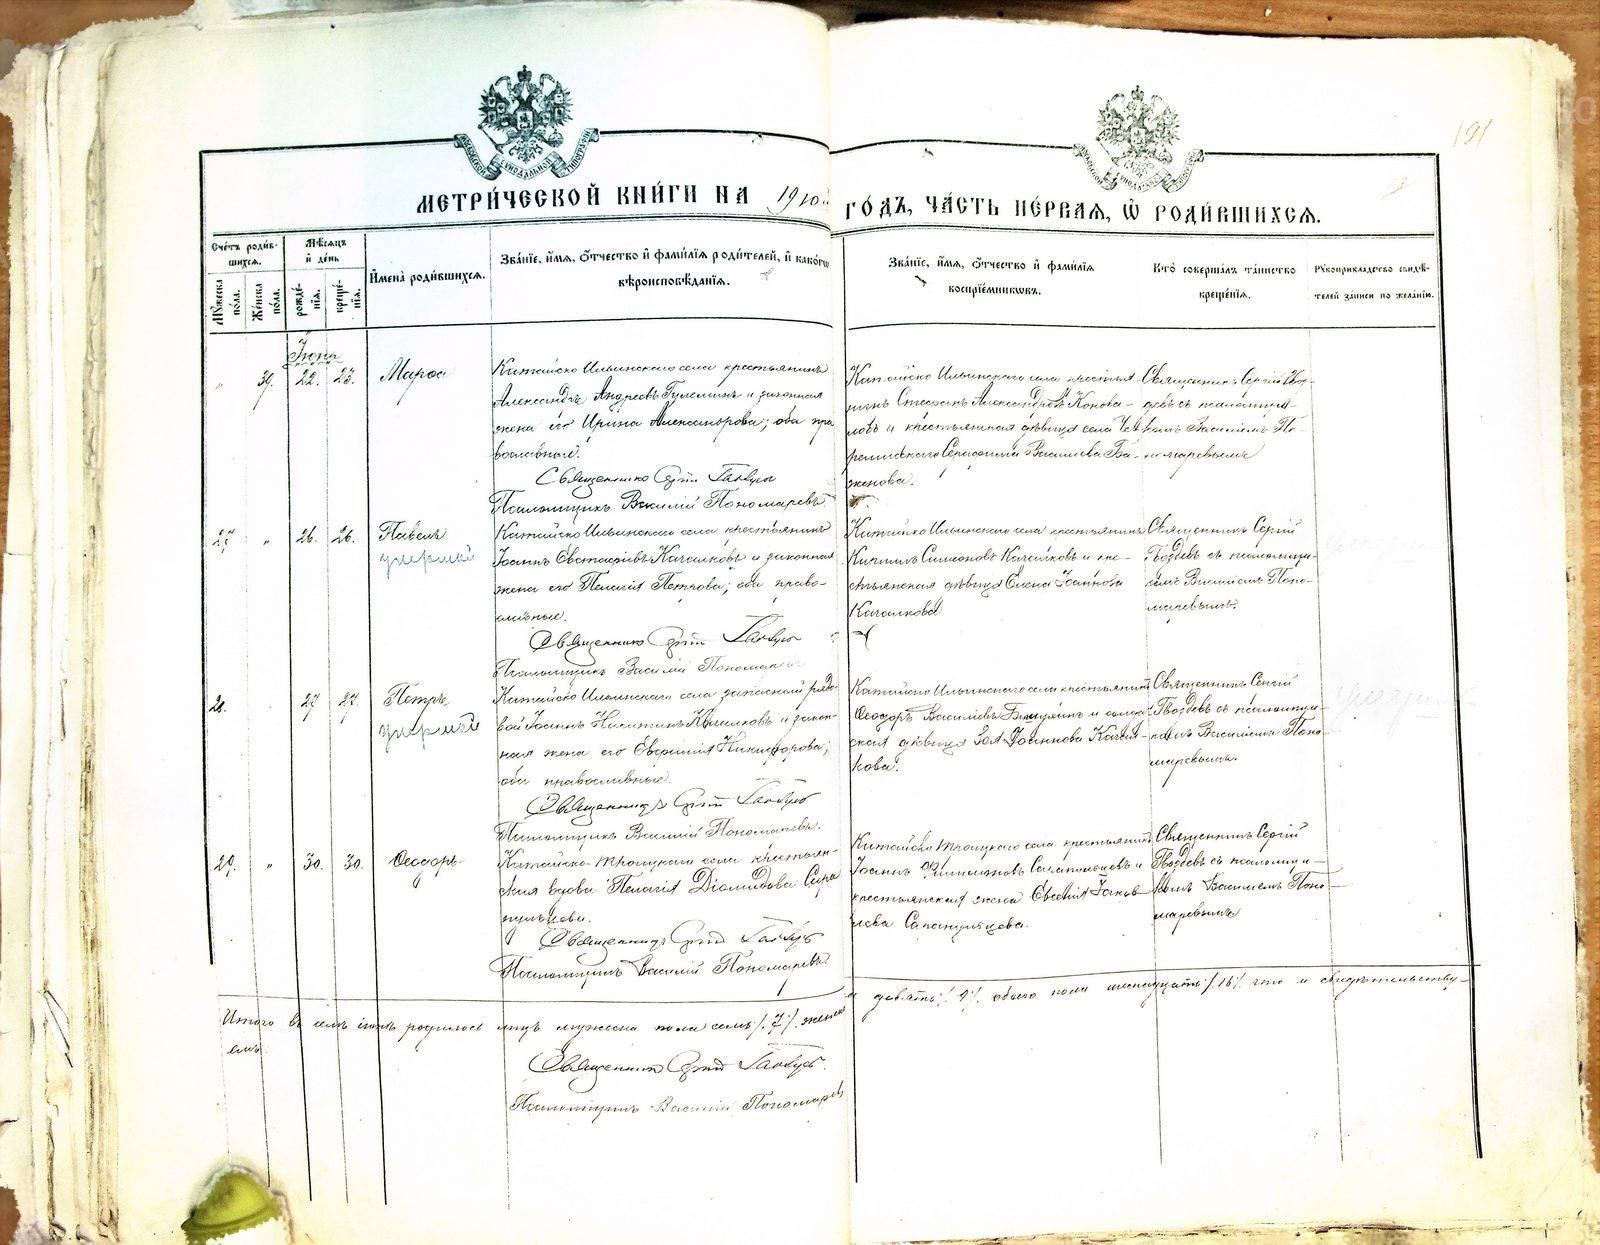 МОСКОВСКОЙ СИНОДАЛЬНОЙ ТИПОГРАФІИ
191
МЕТРИ́ЧЕСКОЙ КНИ́ГИ НА 1910й ГО́ДЪ, ЧА́СТЬ ПЕ́РВАЯ, Ѡ РОДИ́ВШИХСЯ.
Сче́тъ роди́вшихся.
Мѣ́сяцъ и де́нь
Мꙋ́жеска по́ла.
Же́нска по́ла.
рожде́нія.
креще́нія.
Имена̀ роди́вшихся.
Зва́ніе, и́мя, ѻ́тчество и фами́лія роди́телей, и како́гѡ
вѣроисповѣ́данія.
Зва́ніе, и́мя, ѻ́тчество и фами́лія
воспріе́мникѡвъ.
Кто̀ соверша́лъ та́инство
креще́нія.
Рꙋкоприкла́дство свидѣ́-
телей за́писи по жела́нію.
Іюнь
" 39. 22. 23. Марѳа
Китайско Ильинскаго села крестьянинъ
Александръ Андреевъ и законная
жена его Ирина Александрова; оба пра
вославные.
Священникъ Сергій Гвоздевъ
Псаломщикъ Василій Пономаревъ
Китайско Ильинскаго села крестья-
нинъ Стефанъ Александровъ Конова-
ловъ и крестьянская дѣвица села Че
ремисскаго Серафима Васильева Ба-
женова.
Священникъ Сергій Гвоз-
девъ съ псаломщи-
комъ Василіемъ По-
номаревымъ
27 " 26. 26. Павелъ
умершій
Китайско Ильинскаго села крестьянинъ
Іоаннъ Евстафіевъ Качалковъ и законная
жена его Пелагія Петрова; оба право-
славные.
Священникъ Сергій Гвоздевъ
Псаломщикъ Василій Пономаревъ
Китайско Ильинскаго села крестьянинъ
Кириллъ Симеоновъ Качалковъ и кре-
стьянская дѣвица Елена Іоаннова
Качалкова
Священникъ Сергій
Гвоздевъ съ псаломщи-
комъ Василіемъ Поно-
маревымъ.
28. 27 27. Петръ
умершій
Китайско Ильинскаго села запасный рядо-
вой Іоаннъ Никитинъ Качалковъ и закон-
ная жена его Евфимія Никифорова;
оба православные.
Священникъ Сергій Гвоздевъ
Псаломщикъ Василій Пономаревъ.
Китайско Ильинскаго села крестьянинъ
Ѳеодоръ Васильевъ и солдат-
ская дѣвица Зоя Іоаннова Качал-
кова.
Священникъ Сергій
Гвоздевъ съ псаломщи-
комъ Василіемъ Поно-
маревымъ.
29. " 30. 30. Ѳеодоръ
Китайско-Троицкаго села крестьян-
ская вдова Пелагія Діомидова Сара
пульцева.
Священникъ Сергій Гвоздевъ
Псаломщикъ Василій Пономаревъ.
Китайско Троицкаго села крестьянинъ
Іоаннъ Филипповъ Сапапульцевъ и
крестьянская жена Евгенія Іаков-
лева Сарапульцева.
Священникъ Сергій
Гвоздевъ съ псаломщи-
комъ Василіемъ Поно-
маревымъ
Итого въ семъ іюнѣ родилось лицъ мужеска пола семь /.7/. женска девять /.9/. обоего пола шестнадцать /.16/. что и свидѣтельству-
емъ.
Священникъ Сергій Гвоздевъ.
Псаломщикъ Василій Пономаревъ